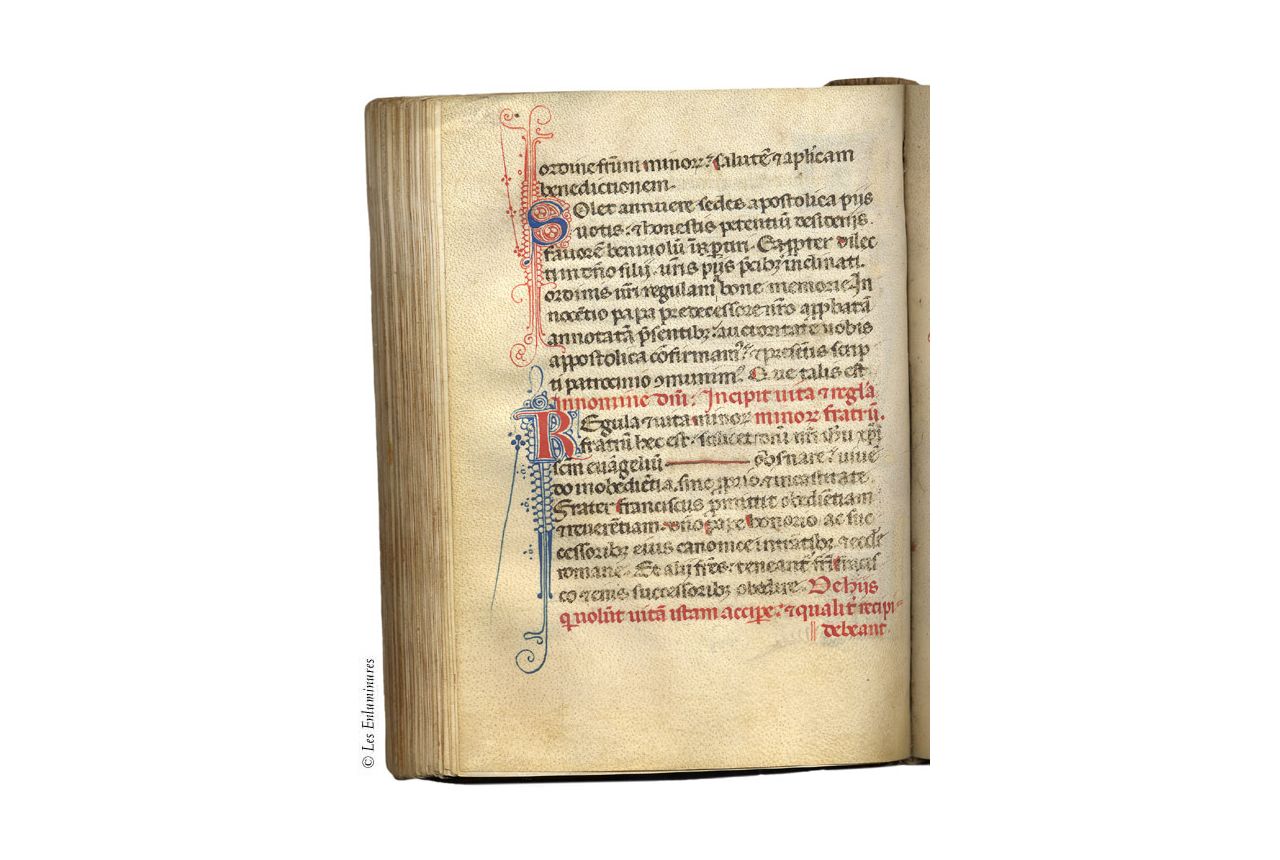 ordine frm̄ minorꝝ salutē ⁊ aplicam
benedictionem.
Solet annuere sedes apostolica piis
uotis. ⁊ honestis petentiū desiderijs.
fauorē beniuolū īꝑtiri. Eapropter dilec
ti in dn̄o filij. urīs piis p̄cibꝫ inclinati.
ordinis urī regulam bone memorie In
nocētio papa predecessore nrō approbatā
annotatā p̄sentibꝫ: auctoritate uobis
appostolica cōfirmamꝰ. ⁊ presētis scrip
ti patrocinio ꝯmunimꝰ. Que talis est
In nomine dn̄i: Incipit uita ⁊ regl̄a
minoꝝ fratrū.
Regula ⁊ uita minoꝝ
fratrū hec est. scilicet dn̄i nr̄i ihū xp̄i
scm̄ euāgeliū obseruare: uiuē
do in obediētia, sine ꝓprio. ⁊ in castitate.
Frater franciscus promittit obediētiam
⁊ reuerētiam. dn̄o pape honorio ac suc
cessoribꝫ eius canonice intrātibꝫ ⁊ eccl̄ie
romane. Et alij frēs. teneant' frī francis
co ⁊ eius successoribꝫ obedire. De hijs
qui uolūt uitā istam accipe. ⁊ qualit' recipi
debeant
© Les Enluminures